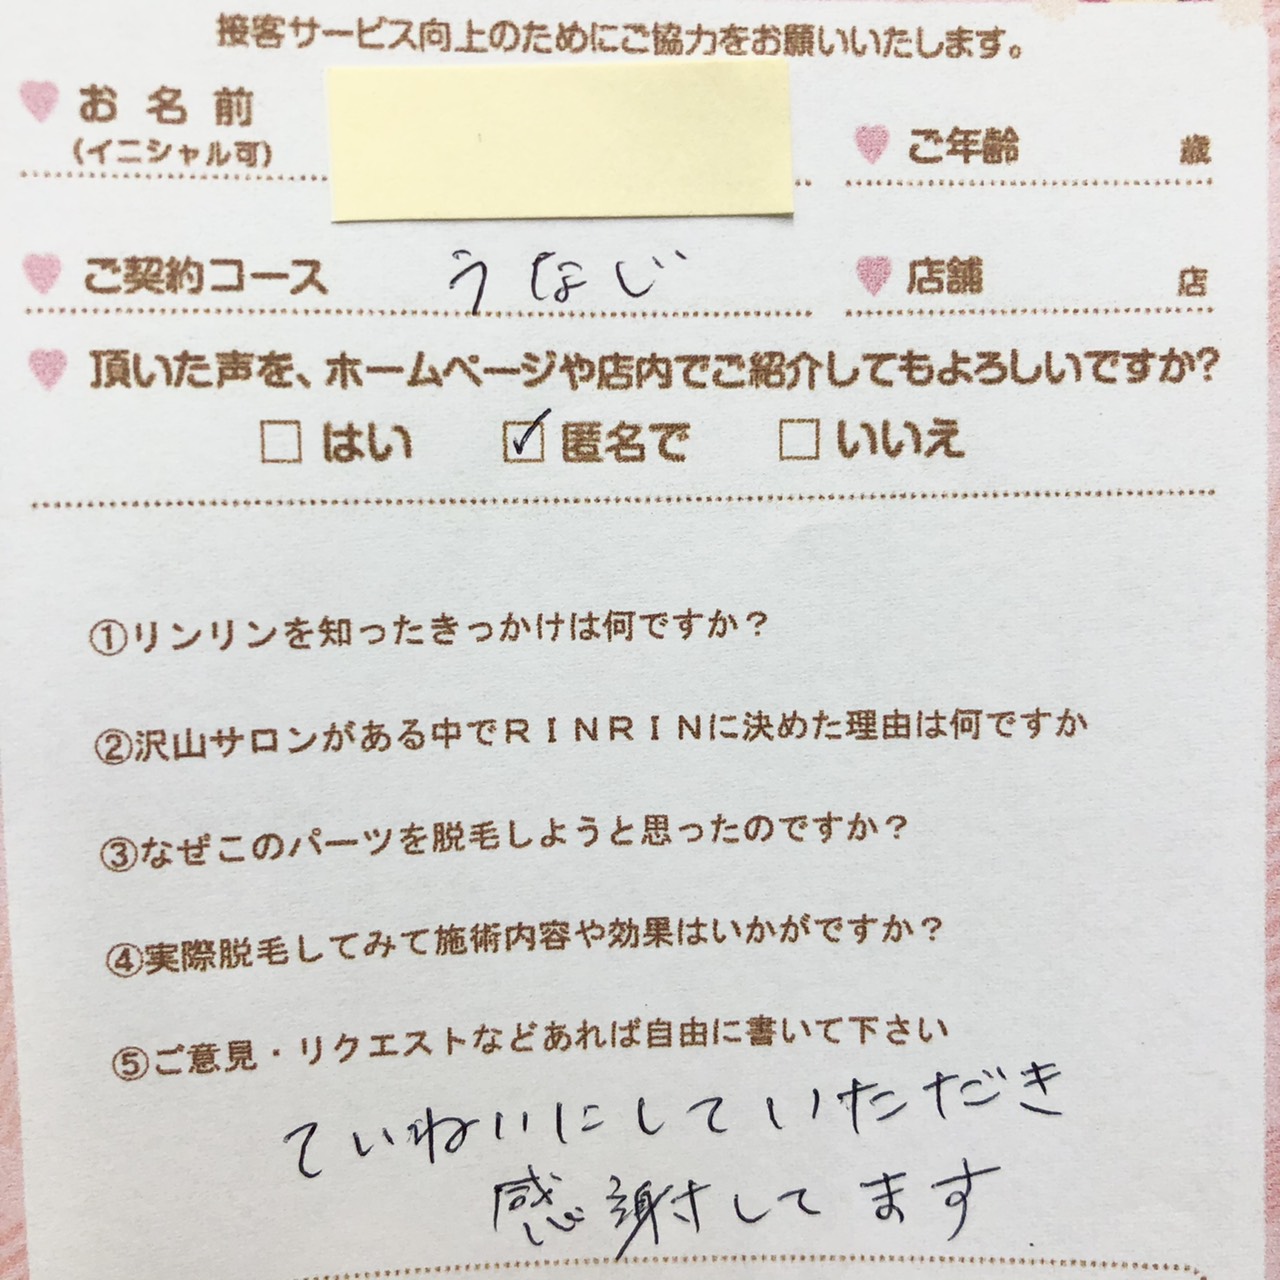 接客サービス向上のためにご協力をお願いいたします。
お名前
(イニシャル可)
ご年齢 歳
ご契約コース うなじ
店舗 店
頂いた声を、ホームページや店内でご紹介してもよろしいですか?
□ はい ☑ 匿名で □ いいえ
①リンリンを知ったきっかけは何ですか？
②沢山サロンがある中でＲＩＮＲＩＮに決めた理由は何ですか
③なぜこのパーツを脱毛しようと思ったのですか？
④実際脱毛してみて施術内容や効果はいかがですか？
⑤ご意見・リクエストなどあれば自由に書いて下さい
ていねいにしていただき
感謝してます.